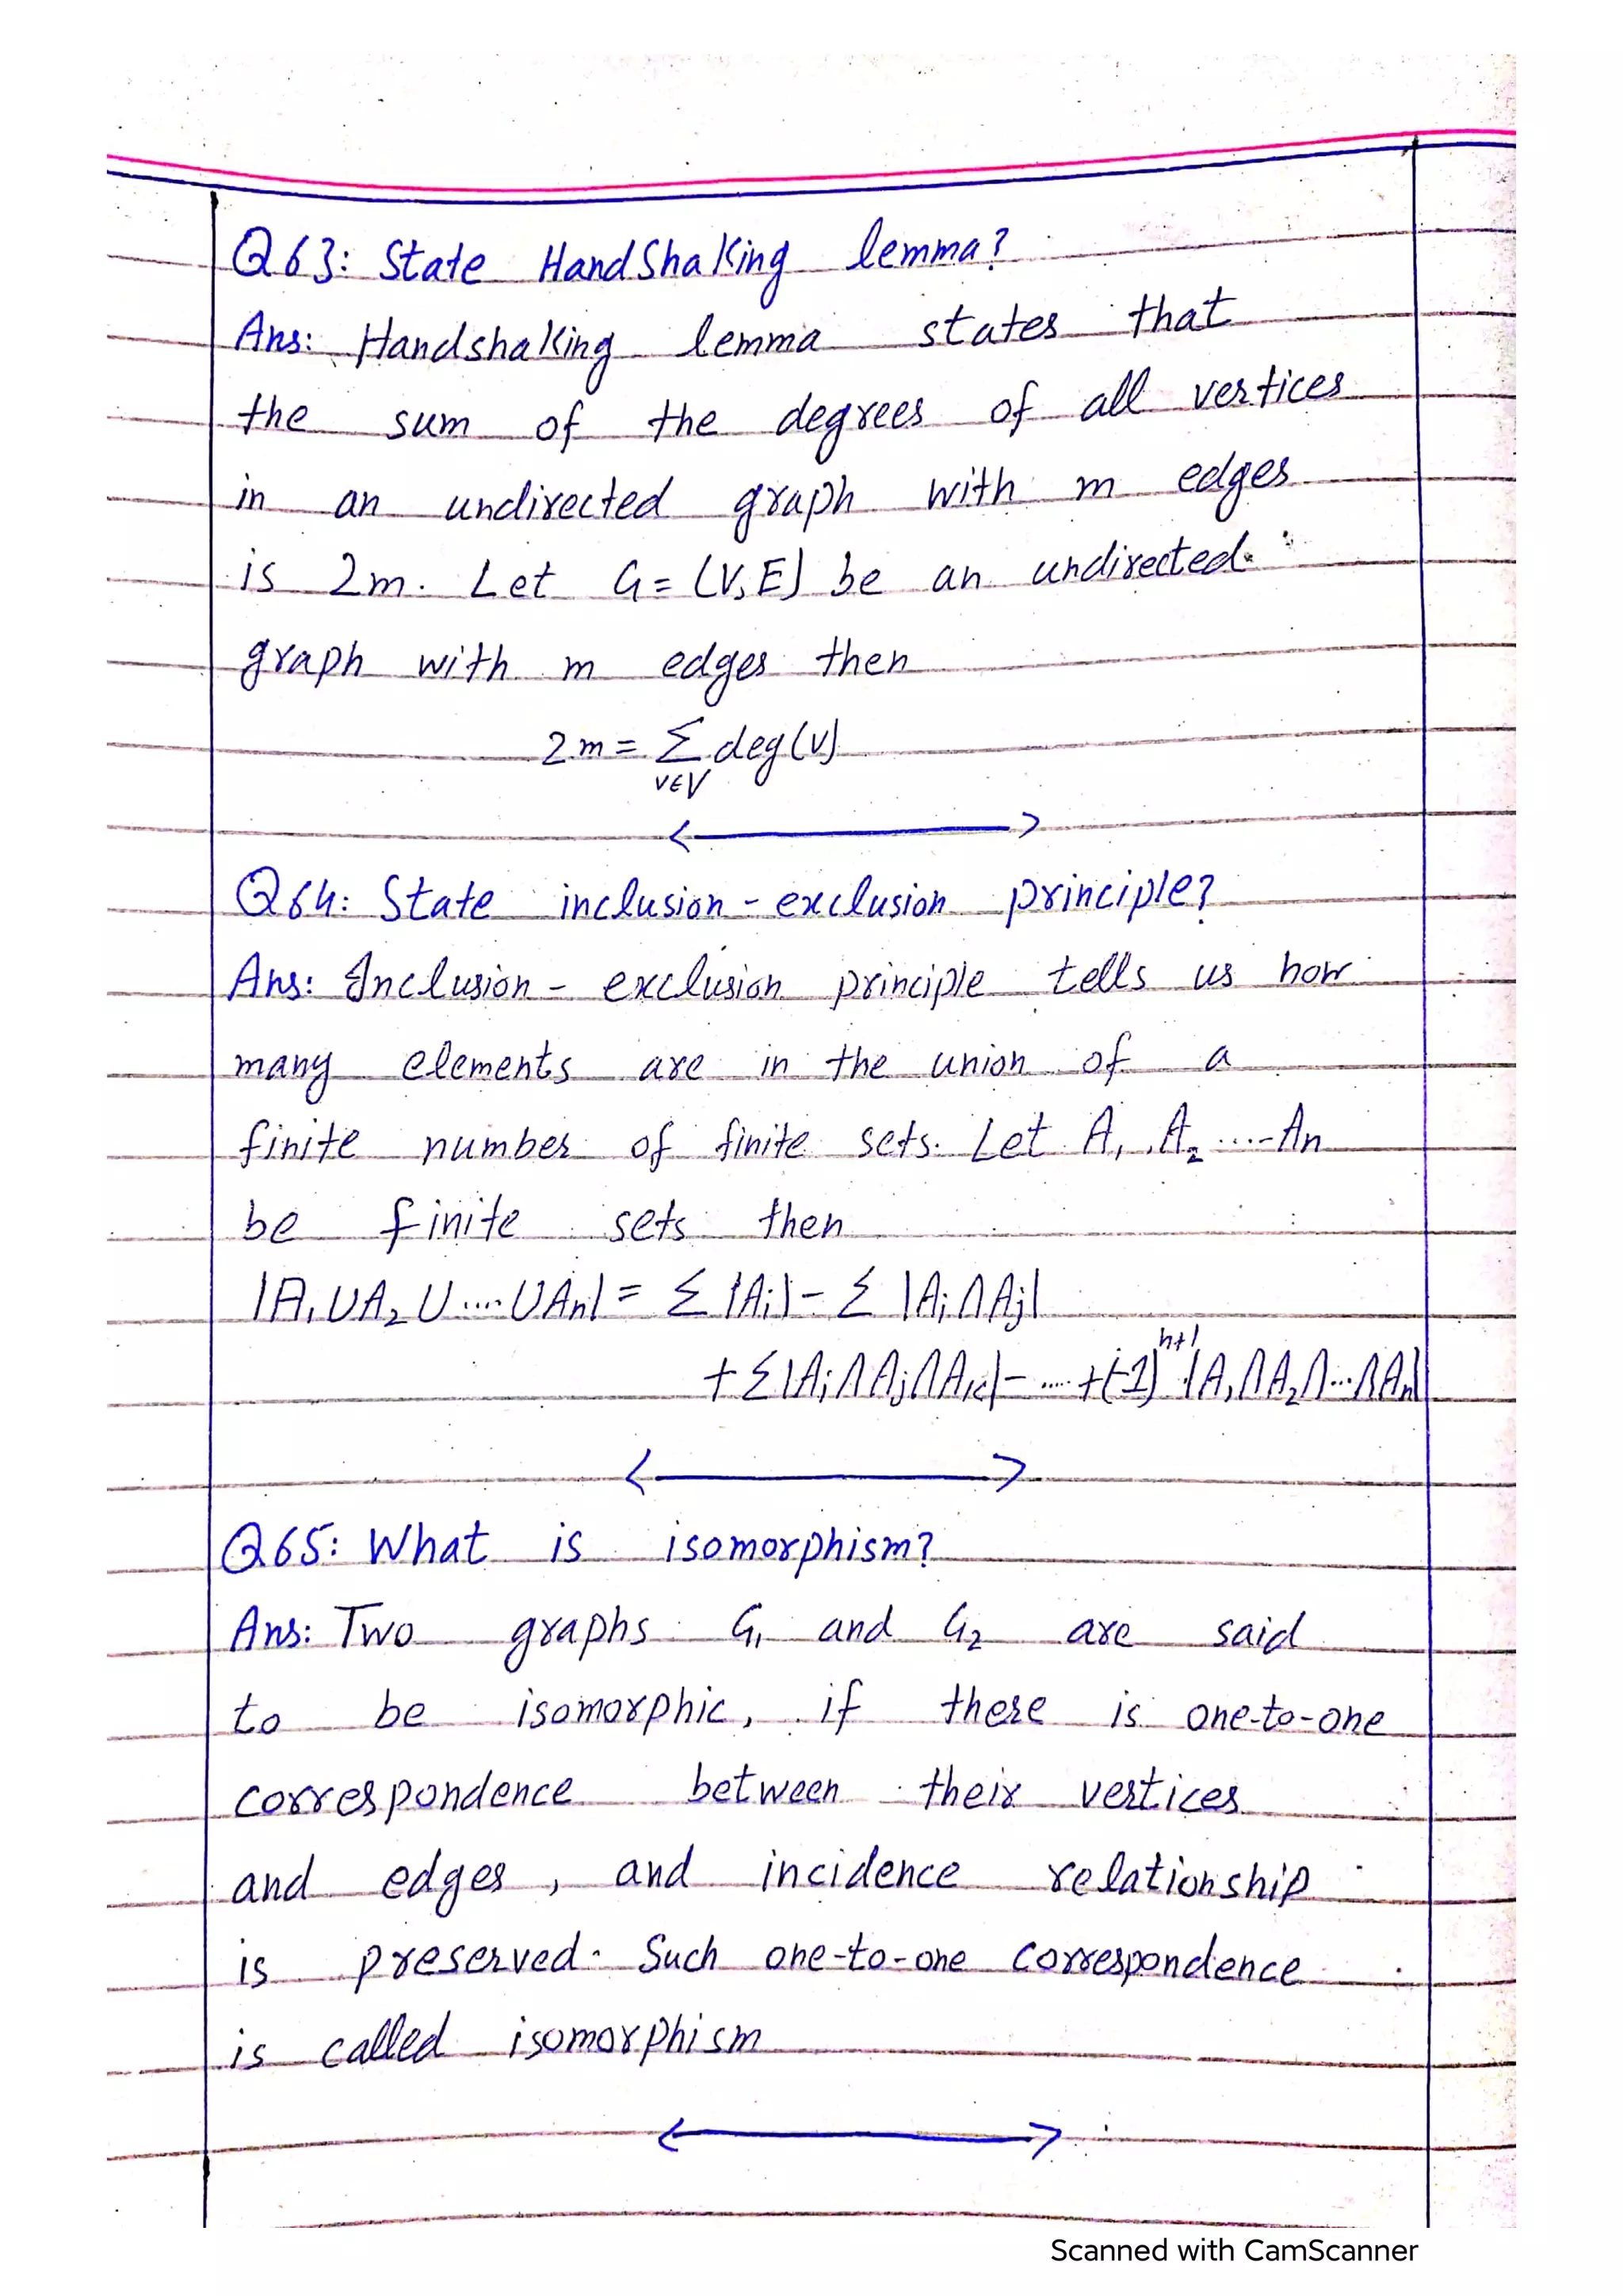 Q63: State HandShaking lemma?
Ans: Handshaking lemma states that
the sum of the degrees of all vertices
in an undirected graph with m edges
is 2m. Let G = (V, E) be an undirected
graph with m edges then
2m = Σ deg(v)
v∈V
Q64: State inclusion - exclusion principle?
Ans: Inclusion - exclusion principle tells us how
many elements are in the union of a
finite number of finite sets. Let A₁, A₂ ..... An
be finite sets then
|A₁ ∪ A₂ ∪ .... ∪ An| = Σ |Ai| - Σ |Ai ∩ Aj|
+ Σ |Ai ∩ Aj ∩ Ak| - .... + (-1)ⁿ⁺¹ |A₁ ∩ A₂ ∩ ... ∩ An|
Q65: What is isomorphism?
Ans: Two graphs G₁ and G₂ are said
to be isomorphic, if there is one-to-one
correspondence between their vertices
and edges, and incidence relationship
is preserved. Such one-to-one correspondence
is called isomorphism
Scanned with CamScanner